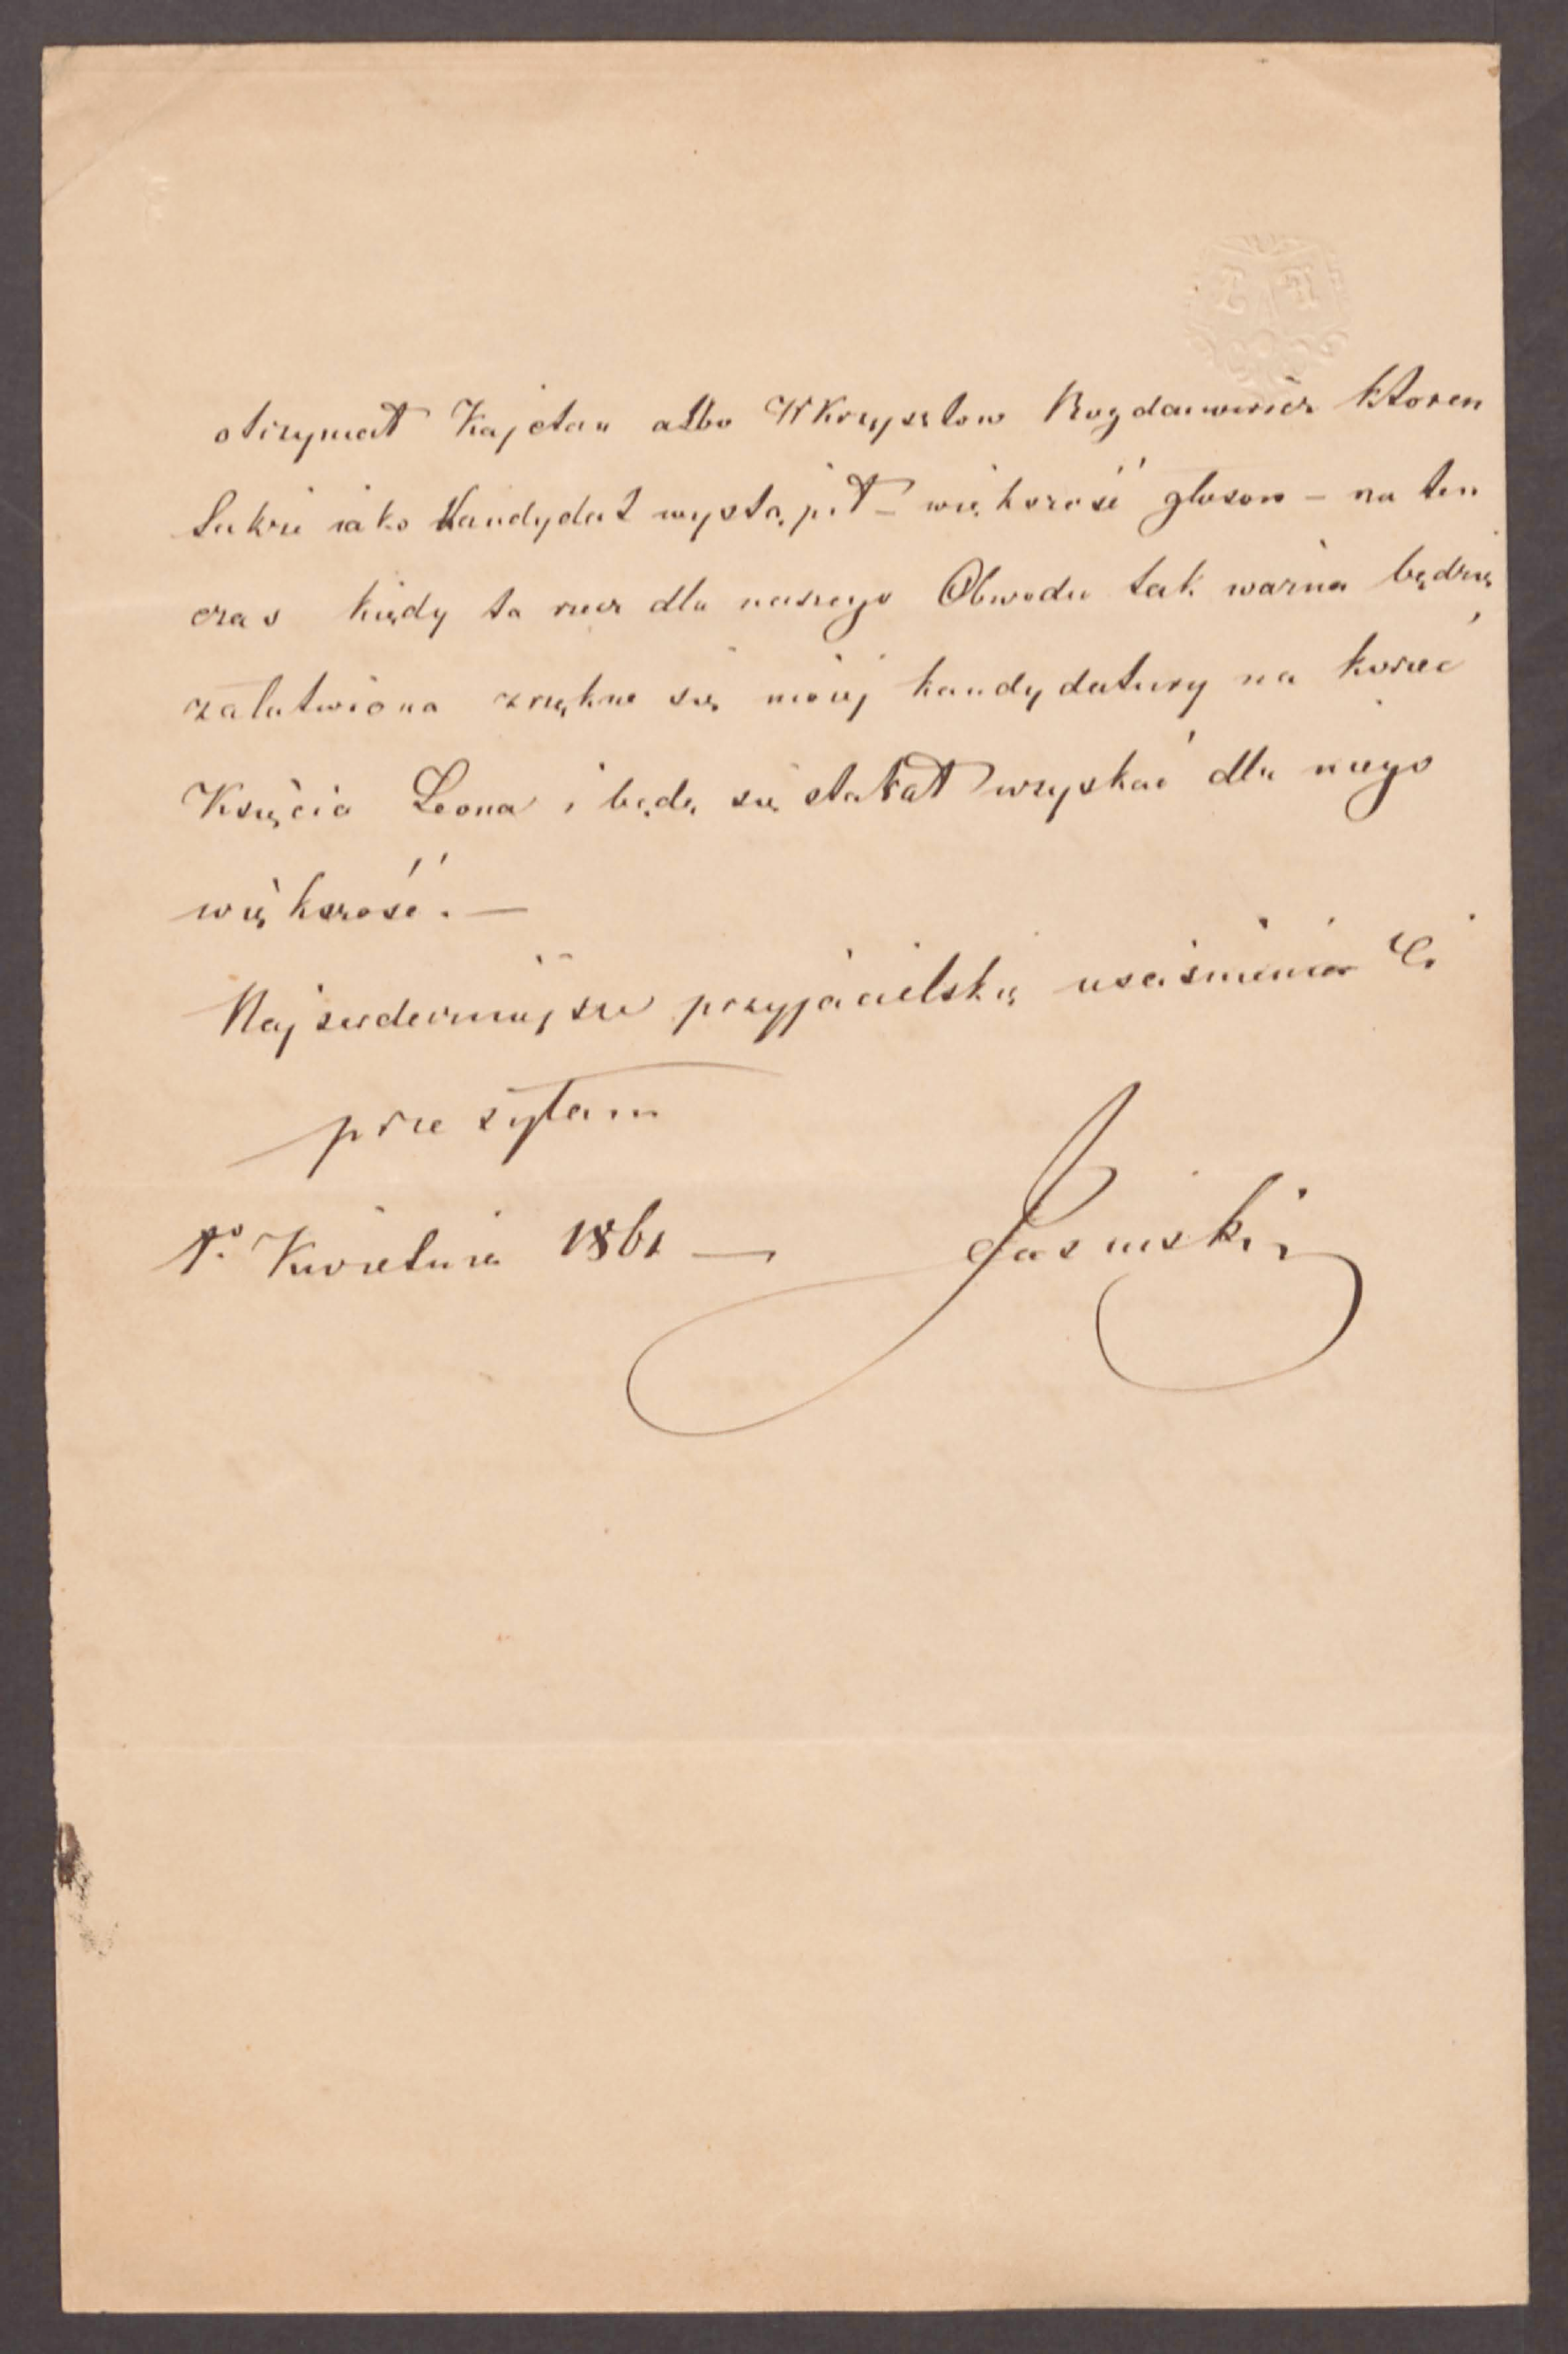 otrzymał Kajetan albo W Krzysztow Bogdanowicz ktoren
takze iako Kandydat wystąpił – większość głosow – na ten
czas kiędy ta rzecz dla naszego Obwodu tak wazna będzię
załatwiona zrzękne się moiej kandydatury na korzeć
Xsięcia Leona i będę się starał wzyskać dla niego
większość. —
Najserdecznięjsze przyjacielskię usciśnienia Ci
przesyłam
1º Kwietnia 1861 —
Jasinski